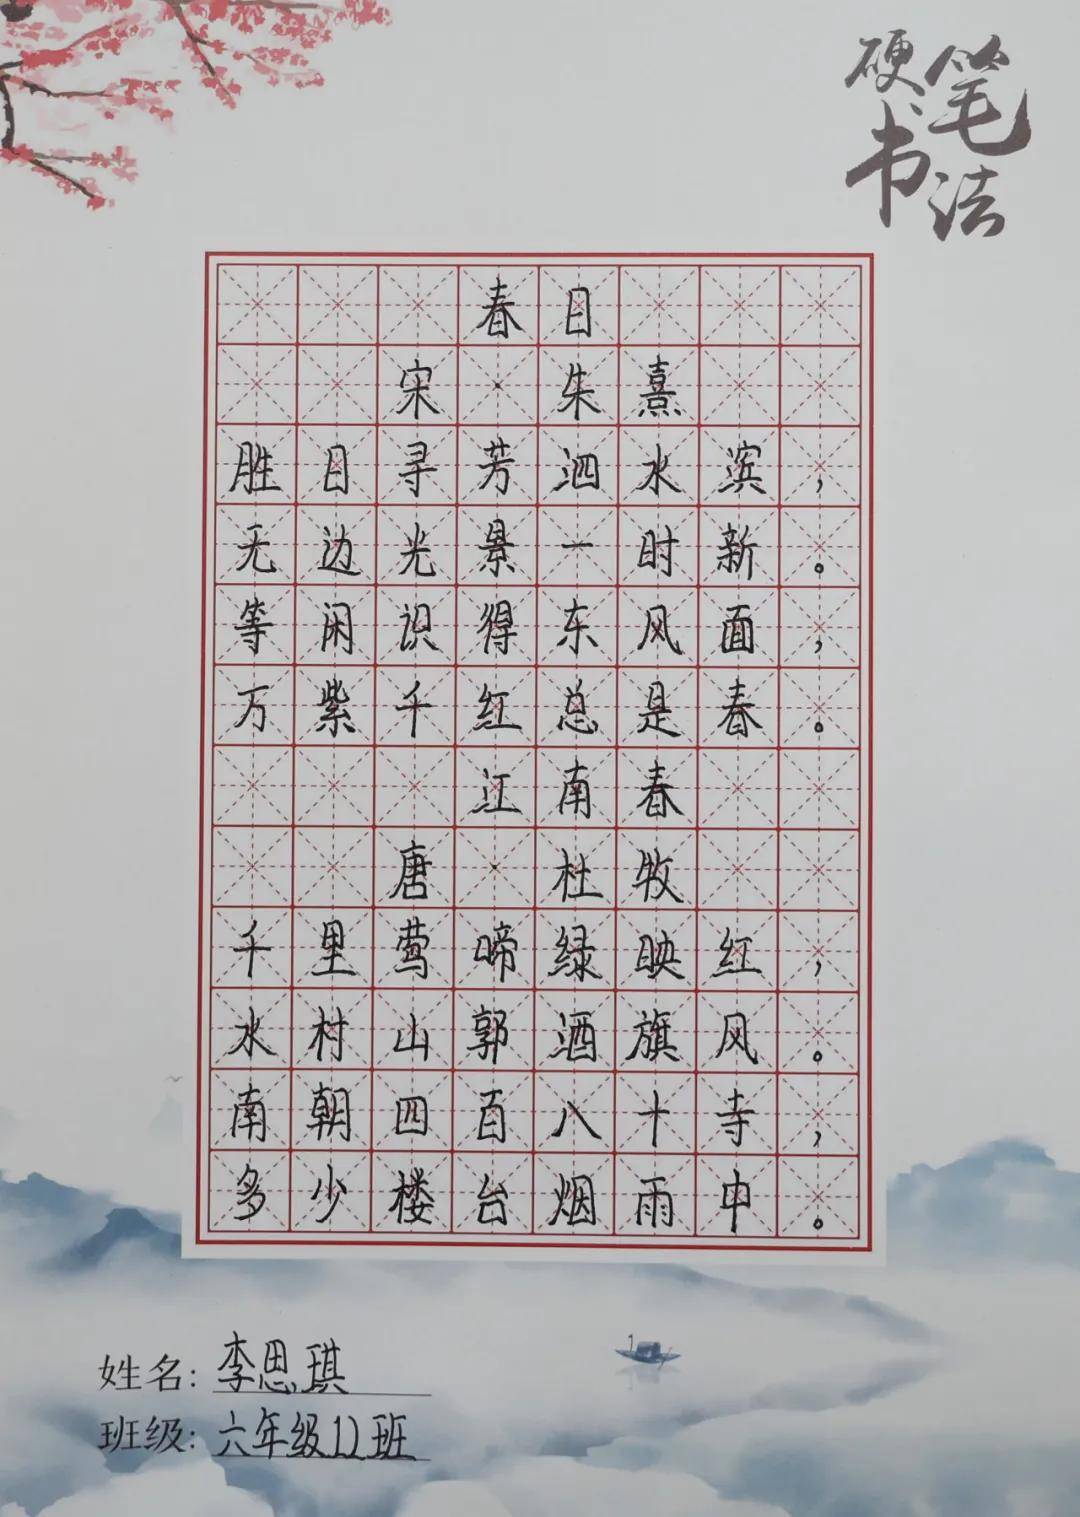 硬笔书法
春日
宋·朱熹
胜日寻芳泗水滨，
无边光景一时新。
等闲识得东风面，
万紫千红总是春。
江南春
唐·杜牧
千里莺啼绿映红，
水村山郭酒旗风。
南朝四百八十寺，
多少楼台烟雨中。
姓名：李思琪
班级：六年级12班